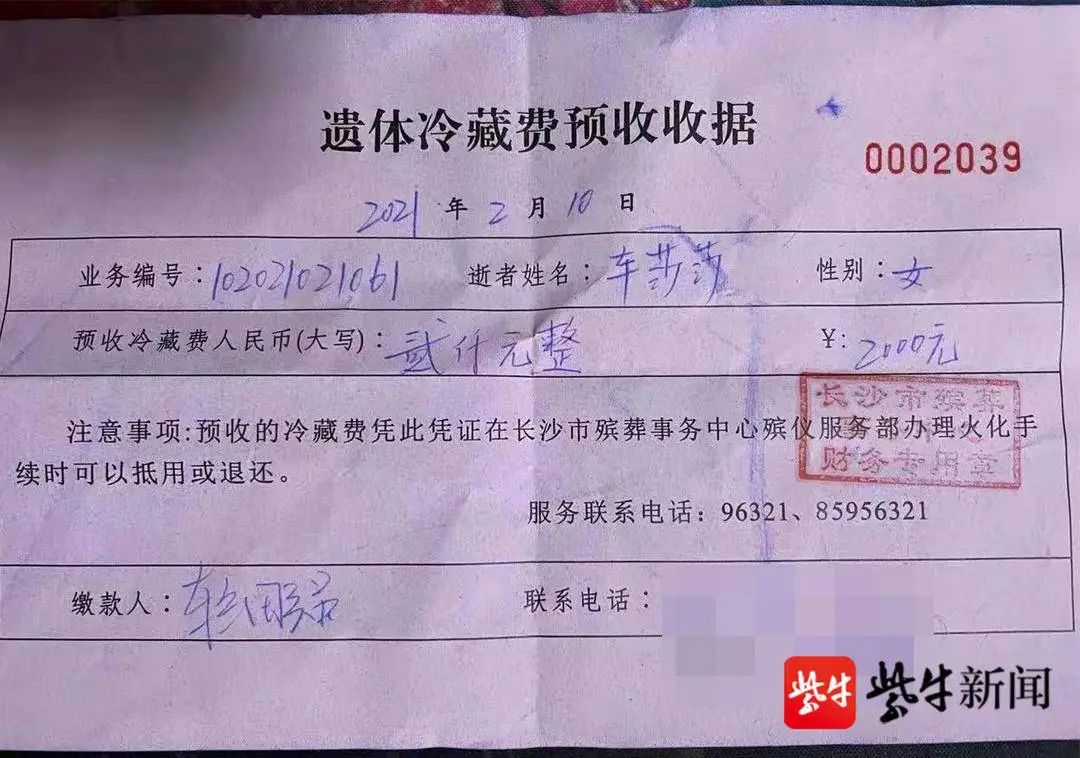 遗体冷藏费预收收据
0002039
2021年2月10日
业务编号:102021021061 逝者姓名:车莎莎 性别:女
预收冷藏费人民币(大写):贰仟元整 ¥:2000元
注意事项:预收的冷藏费凭此凭证在长沙市殡葬事务中心殡仪服务部办理火化手
续时可以抵用或退还。
长沙市殡葬
财务专用章
服务联系电话:96321、85956321
缴款人: 联系电话:
紫牛 紫牛新闻